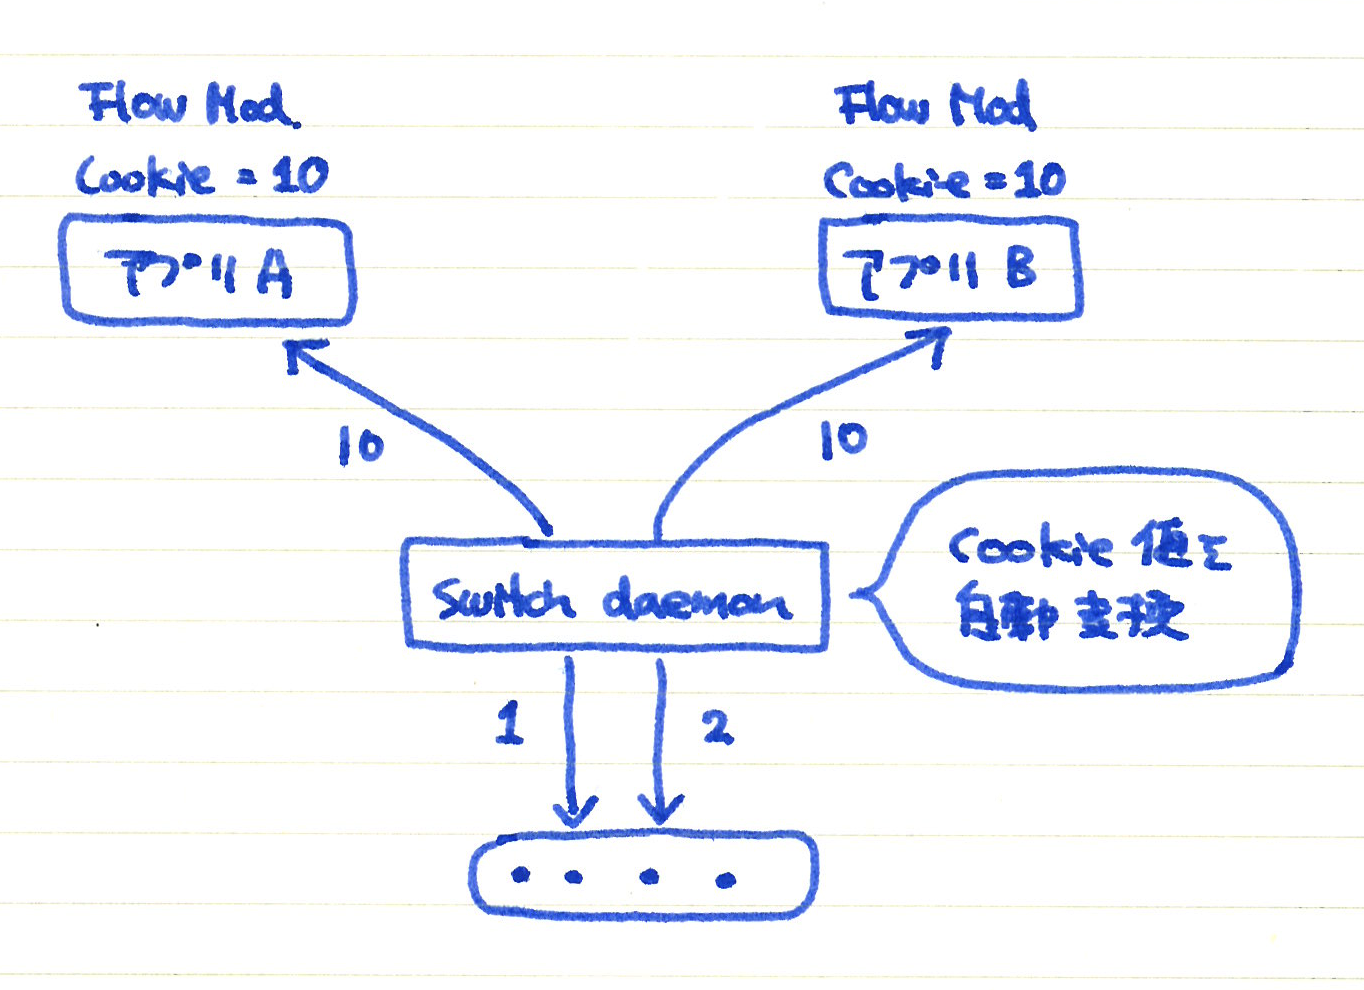 Flow Mod
Cookie = 10
アプリ A
Flow Mod
Cookie = 10
アプリ B
10
10
Switch daemon
Cookie 値を
自動変換
1
2